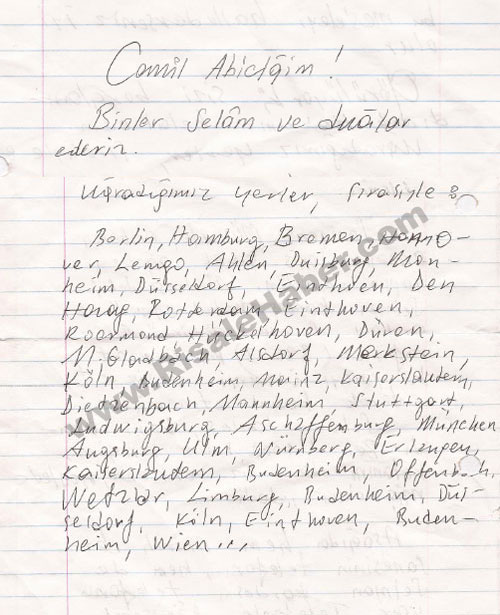 Camil Abiciğim!
Binler Selâm ve duâlar
ederiz.
Uğradığımız yerler, sırasiyle:
Berlin, Hamburg, Bremen, Hanno-
ver, Lemgo, Ahlen, Duisburg, Mon-
heim, Düsseldorf, Einthoven, Den
Haag, Rotterdam Einthoven,
Roermond Hückelhoven, Düren,
M.Gladbach, Alsdorf, Merkstein,
Köln, Budenheim, Mainz, Kaiserslautern,
Dietzenbach, Mannheim Stuttgart,
Ludwigsburg, Aschaffenburg, München
Augsburg, Ulm, Nürnberg, Erlangen,
Kaiserslautern, Budenheim, Offenbach,
Wetzlar, Limburg, Budenheim, Düs-
seldorf, Köln, Einthoven, Buden-
heim, Wien...
www.RisaleHaber.com